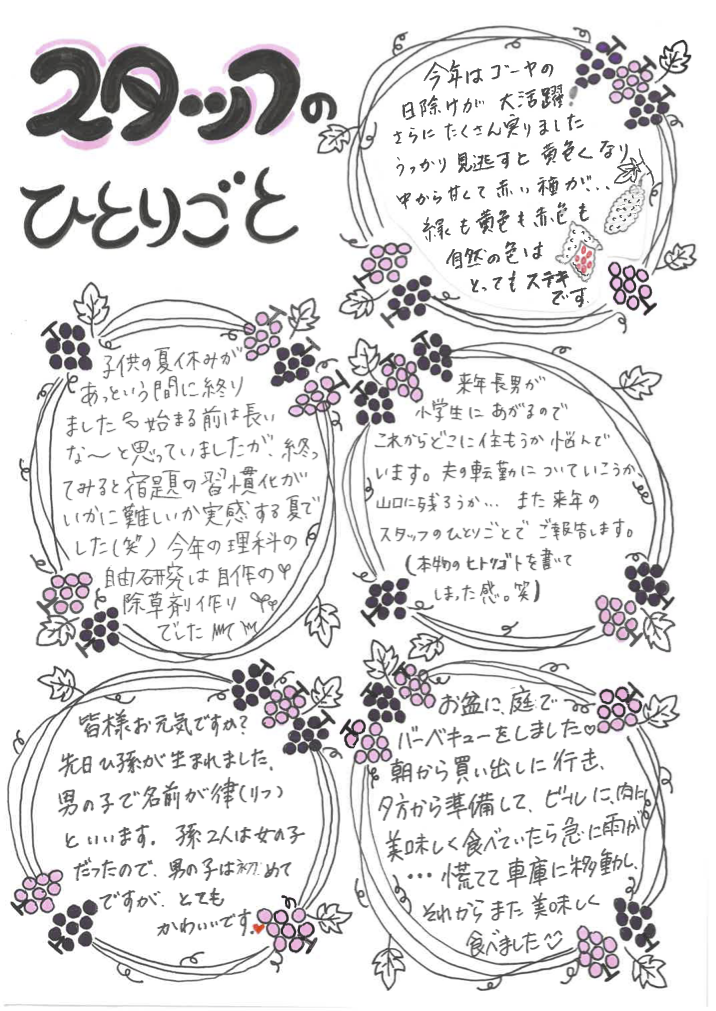 スタッフの
ひとりごと
今年はゴーヤの
日除けが 大活躍!
さらに たくさん実りました
うっかり 見逃すと 黄色くなり
中から 甘くて 赤い 種が...
緑も黄色も赤色も
自然の色は
とっても ステキ
です。
子供の夏休みが
あっという間に終り
ました 始まる前は長い
な〜と思っていましたが、終っ
てみると宿題の習慣化が
いかに難しいか実感する夏で
した(笑) 今年の理科の
自由研究は自作の
除草剤作り
でした
来年長男が
小学生にあがるので
これからどこに住もうか悩んで
います。夫の転勤についていこうか、
山口に残ろうか... また来年の
スタッフのひとりごとでご報告します。
(本物のヒトリゴトを書いて
しまった感。笑)
皆様お元気ですか?
先日ひ孫が生まれました。
男の子で名前が律(りつ)
といいます。孫2人は女の子
だったので、男の子は初めて
ですが、とても
かわいいです。
お盆に、庭で
バーベキューをしました♡
朝から買い出しに行き、
夕方から準備して、ビールに、肉に
美味しく食べていたら急に雨が
…慌てて車庫に移動し、
それからまた美味しく
食べました